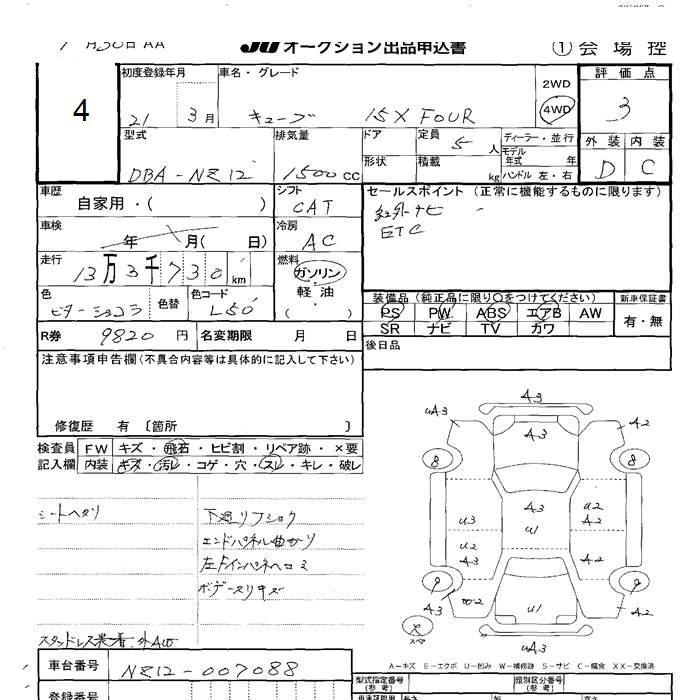 月30日 AA JU オークション出品申込書 ① 会場控
4
初度登録年月 車名・グレード 2WD 4WD 評価点
21 3月 キューブ 15X FOUR 3
型式 排気量 ドア 定員 5人 ディーラー・並行 外装 内装
DBA-NZ12 1500cc 形状 積載 kg モデル年式 年 ハンドル 左・右 D C
車歴 自家用・( ) シフト CAT セールスポイント (正常に機能するものに限ります)
社外ナビ
車検 年 月( 日) 冷房 AC ETC
走行 13万3千730km 燃料 ガソリン・軽油・( )
色 ビターショコラ 色替 色コード L50 装備品 (純正品に限り○をつけてください) 新車保証書
PS PW ABS エアB AW 有・無
SR ナビ TV カワ
R券 9820円 名変期限 月 日 後日品
注意事項申告欄 (不具合内容等は具体的に記入して下さい)
修復歴 有 〔箇所 〕
検査員記入欄 FW キズ・飛石・ヒビ割・リペア跡・×要
内装 キズ・汚レ・コゲ・穴・スレ・キレ・破レ
シートヘタリ 下廻リフショク
エンドパネル曲がり
左Fインパネヘコミ
ボデースリキズ
スタッドレス装着・外AW
A3
uA3 A3 A2
8 8
A3 u2
u3 u1 A2
u2 A2
9 9
A3 w2 u1 A2
スペア uA3
A-キズ E-エクボ U-凹み W-補修跡 S-サビ C-腐食 XX-交換済
車台番号 NZ12-007088 型式指定番号(参考) 類別区分番号(参考)
登録番号